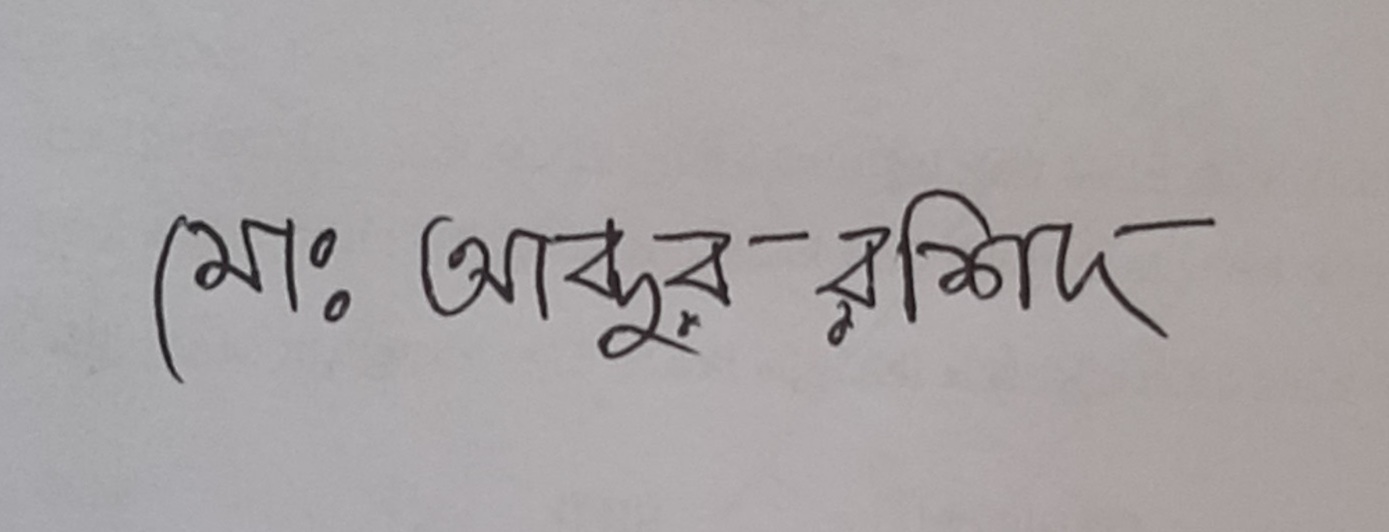 মোঃ আব্দুর-রশিদ